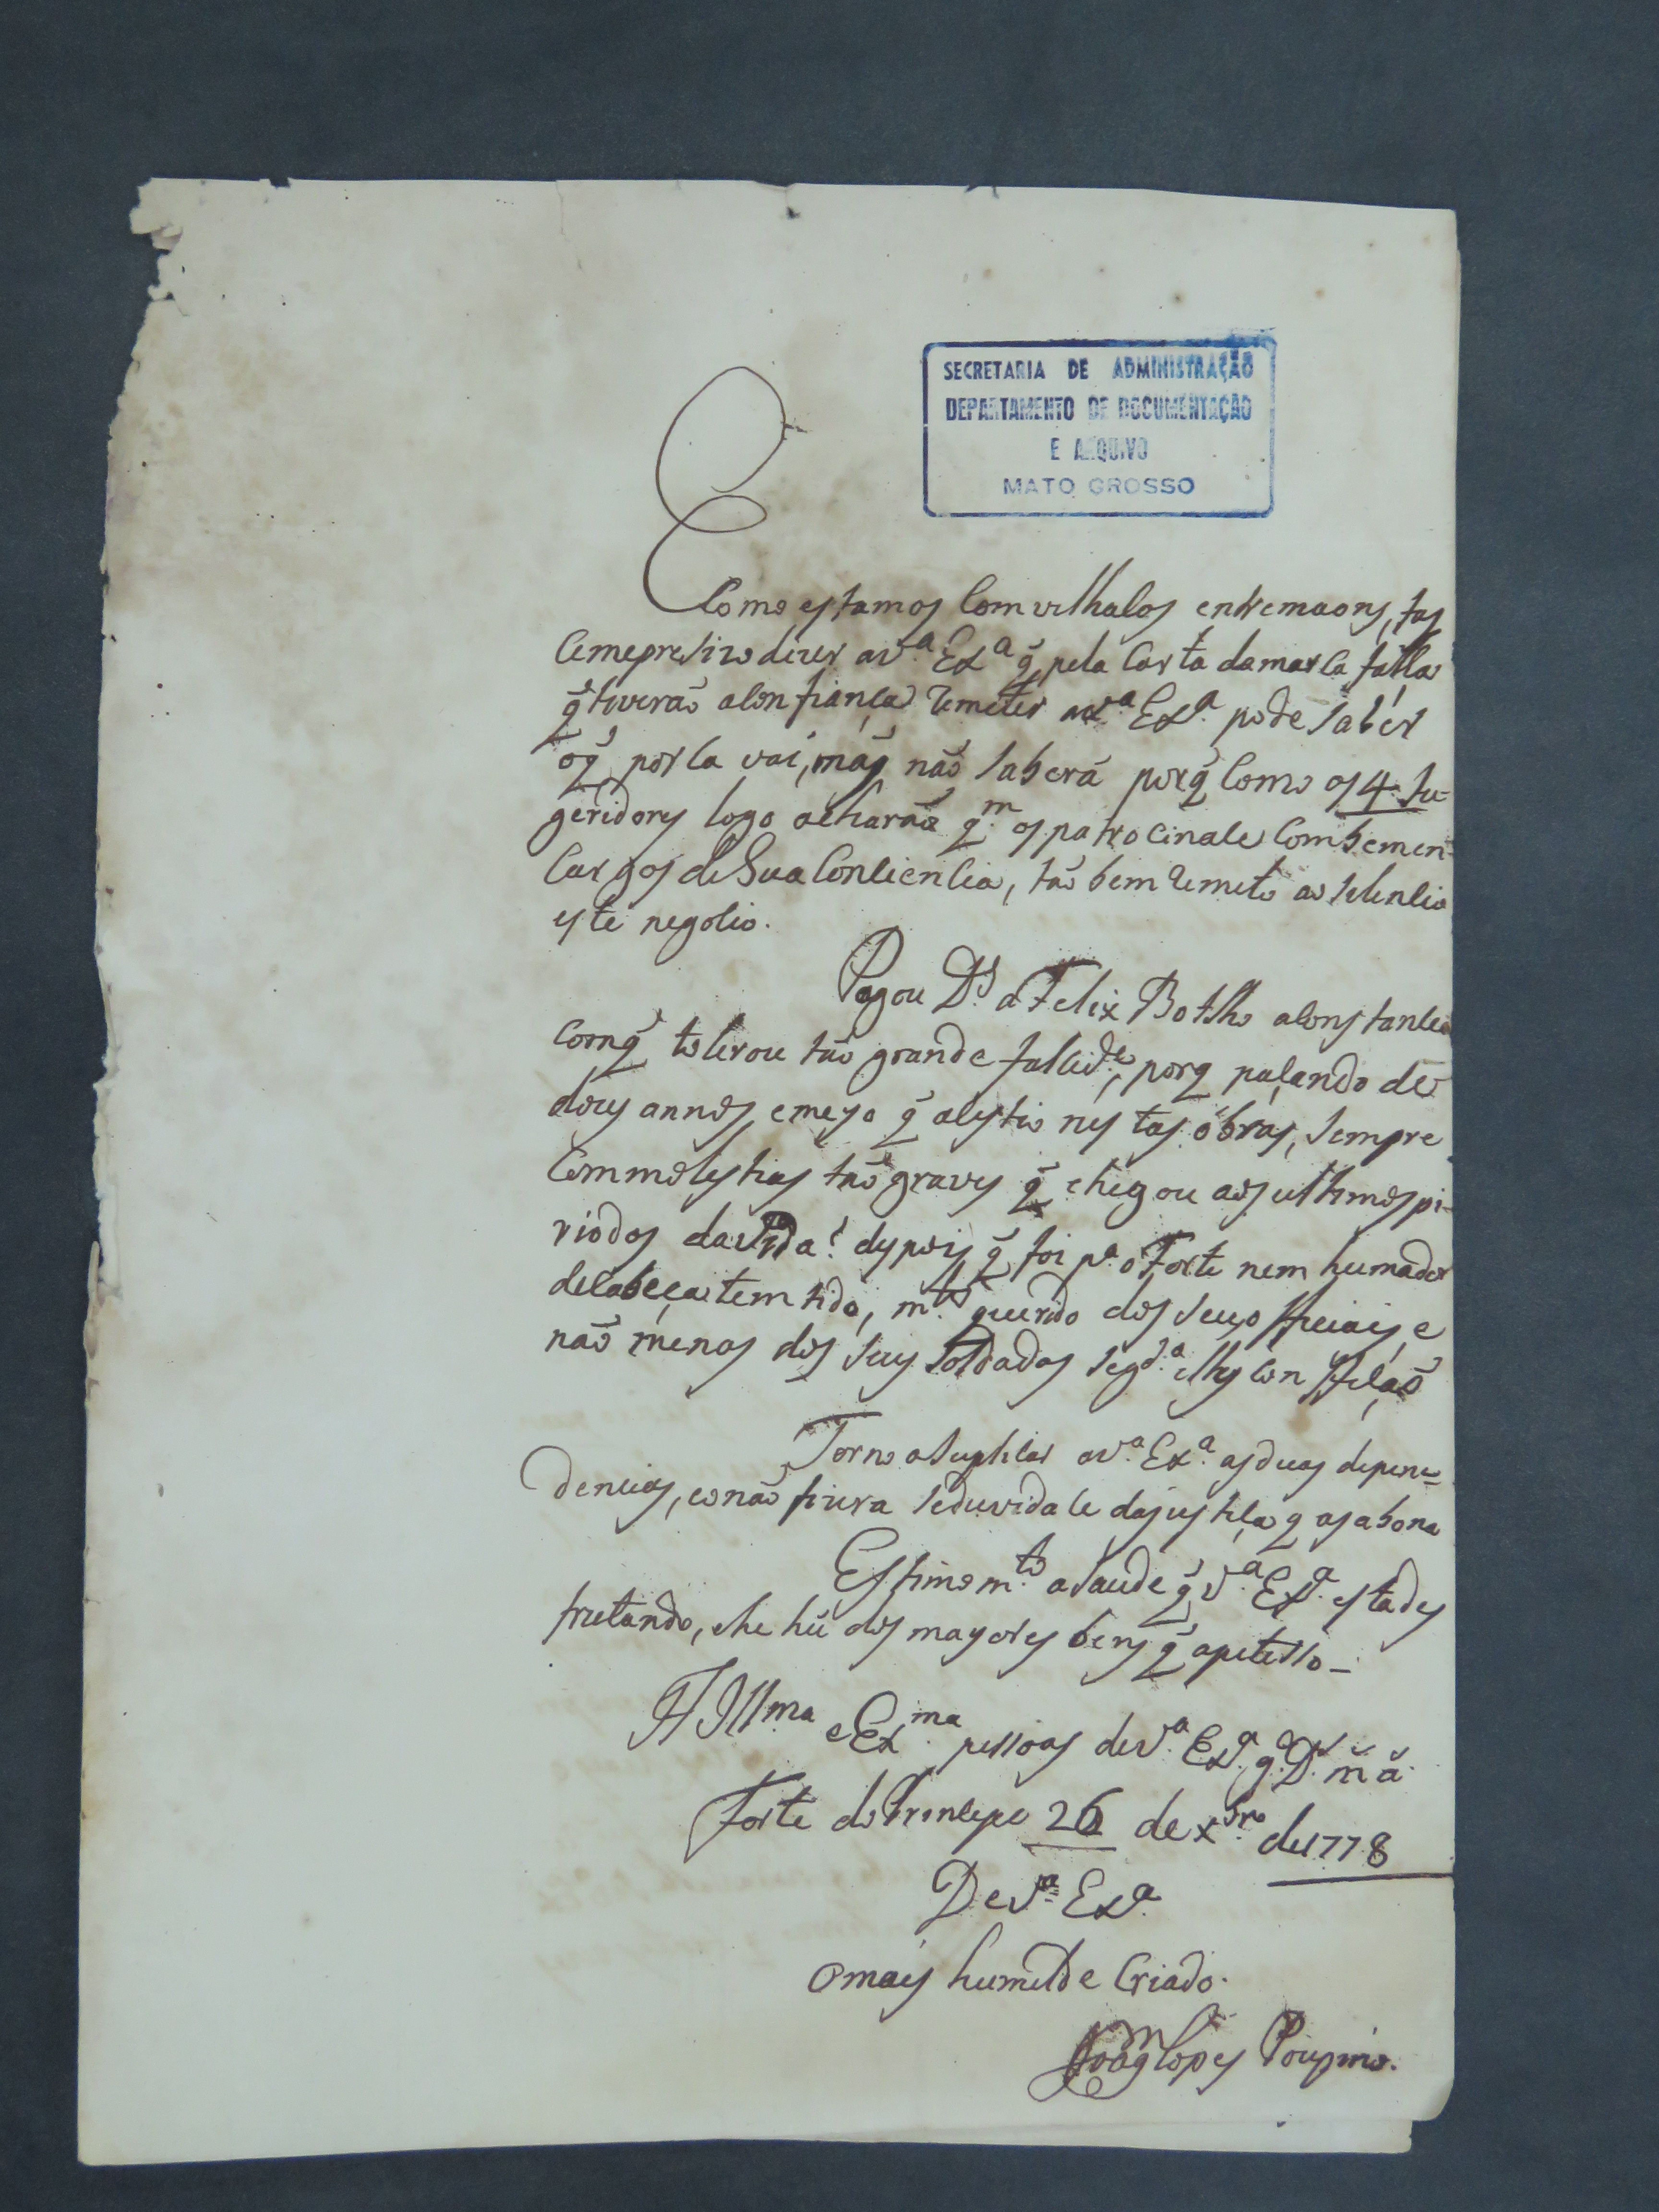 SECRETARIA DE ADMINISTRAÇÃO
DEPARTAMENTO DE DOCUMENTAÇÃO
E ARQUIVO
MATO GROSSO
Como estamos com velhacos entremaons, fas
cemepreciso dizer aV.ª Ex.ª q̃ pela carta damarca falsa
q̃ tiverão aconfiança Remeter aV.ª Ex.ª pode saber
oq̃ por la vai, más não saberá porq̃ como os 4 su-
geridores logo acharão q.m os patrocinace com bemen-
cargos de Sua Conciencia, tão bem Remeto ao silencio
este negocio.
Pagou D.s a Felix Botelho aconstancia
comq̃ tolerou tão grande falcid.e, porq paçando de
dois annos, emeyo q̃ acistio nestas obras, sempre
commolestias tão graves q̃ chegou aos ultimos pi-
riodos davida: despois q̃ foi p.ª o Forte nem humador
decabeça tem tido, m.to querido dos seus officiais, e
não menos dos seus soldados seg.da elles confeção
Torno asuplicar aV.ª Ex.ª as duas depen-
dencias, eo não fizera seduvidace dajustiça q as abona
Estimo m.to asaude q̃ V.ª Ex.ª está des
frutando, ehe hũ dos mayores bens q̃ apetesso_
A Ill.ma e Ex.ma pessoas deV.ª Ex.ª g.e D.s m̃ ã.
Forte do Princepe 26 de xbr.o de 1778
DeV.ª Ex.ª
Omais humilde Criado.
Joaq.m Lopes Poupino.